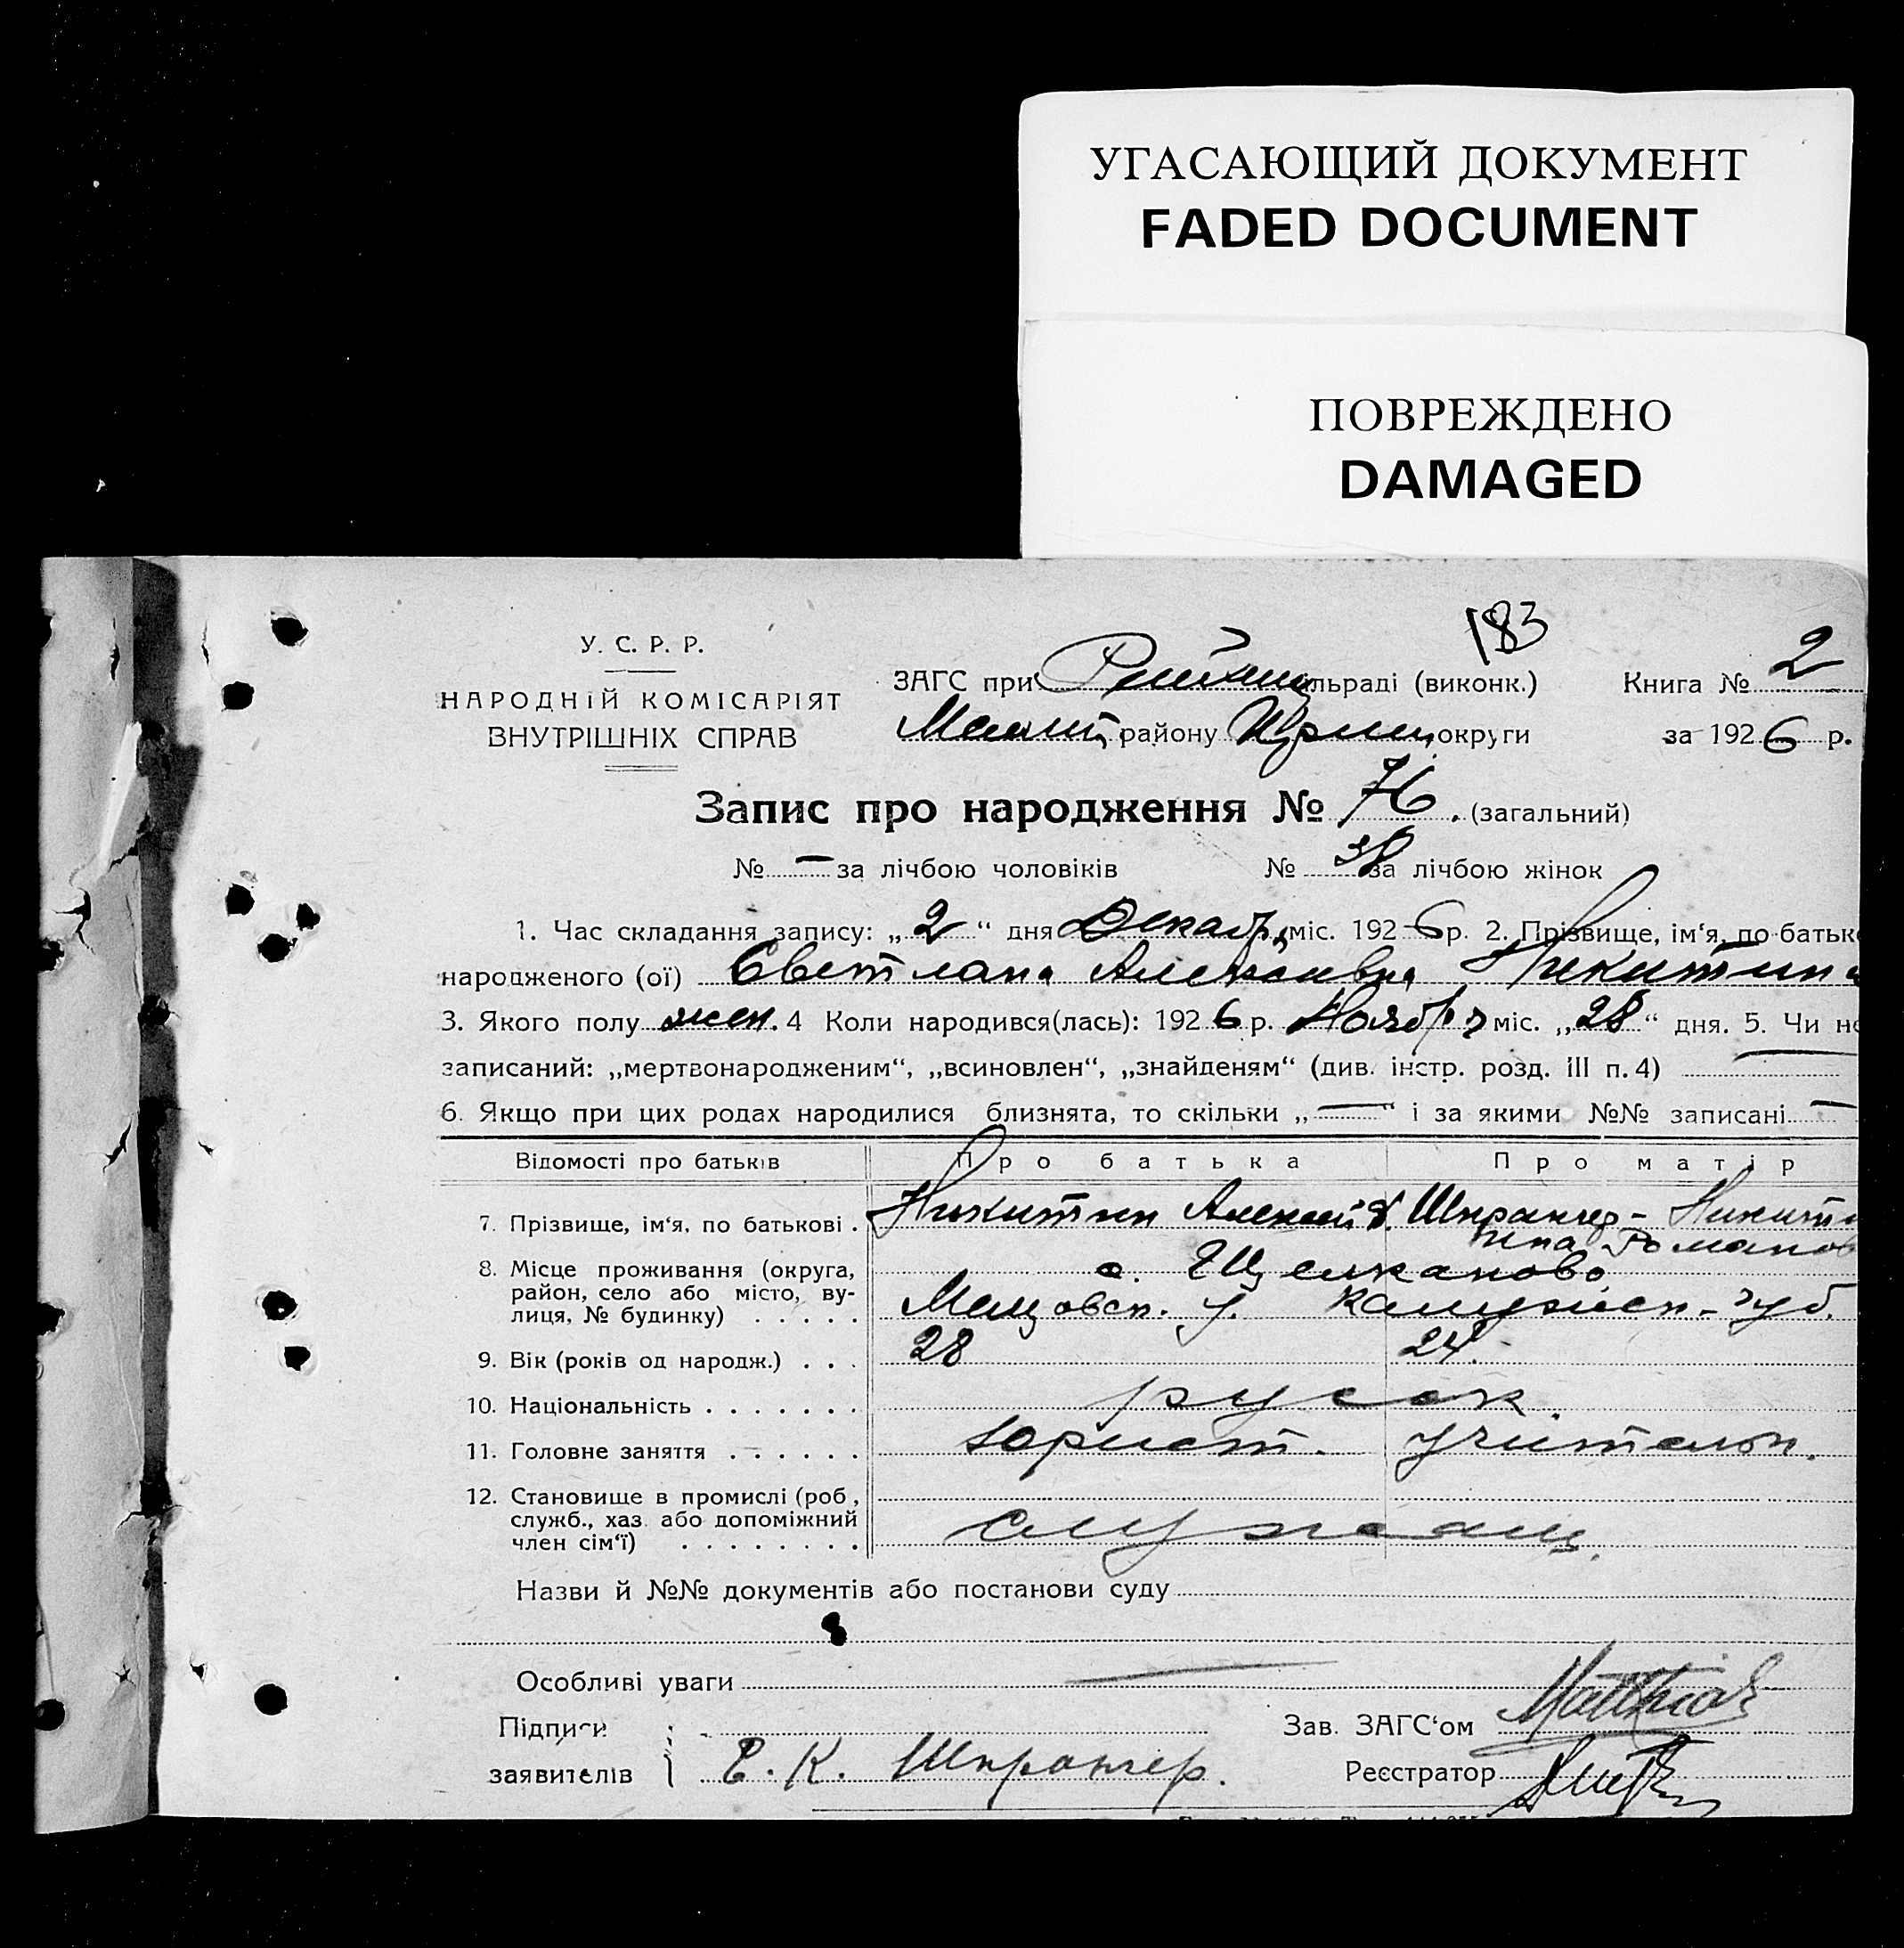 УГАСАЮЩИЙ ДОКУМЕНТ
FADED DOCUMENT
ПОВРЕЖДЕНО
DAMAGED
183
У. С. Р. Р.
НАРОДНІЙ КОМІСАРІЯТ
ВНУТРІШНІХ СПРАВ
ЗАГС при льраді (виконк.) Книга № 2
району округи за 1926 р.
Запис про народження № 76. (загальний)
№ — за лічбою чоловіків № 38 за лічбою жінок
1. Час складання запису: „2“ дня Декабр. міс. 1926 р. 2. Прізвище, ім‘я, по батьк
народженого (ої) Светлана Алексеевна Никитина
3. Якого полу жен. 4 Коли народився(лась): 1926 р. Ноября міс. „28“ дня. 5. Чи не
записаний: „мертвонародженим“, „всиновлен“, „знайденям“ (див. інстр. розд. III п. 4) —
6. Якщо при цих родах народилися близнята, то скільки „—“ і за якими №№ записані —
Відомості про батьків Про батька Про матір
7. Прізвище, ім‘я, по батькові . Никитин Алексей Шпрангер - Никити
Романов
8. Місце проживання (округа, район, село або місто, вулиця, № будинку) . . . . . с. Щелканово
Мещовск. у. Калужск. губ.
9. Вік (років од народж.) . . . 28 24.
10. Національність . . . . . . . русск.
11. Головне заняття . . . . . . юрист. учительн.
12. Становище в промислі (роб, служб., хаз. або допоміжний член сім‘ї) . . . . . . . . служащ.
Назви й №№ документів або постанови суду
Особливі уваги —
Підписи Зав. ЗАГС‘ом
заявителів Е. К. Шпрангер. Реєстратор